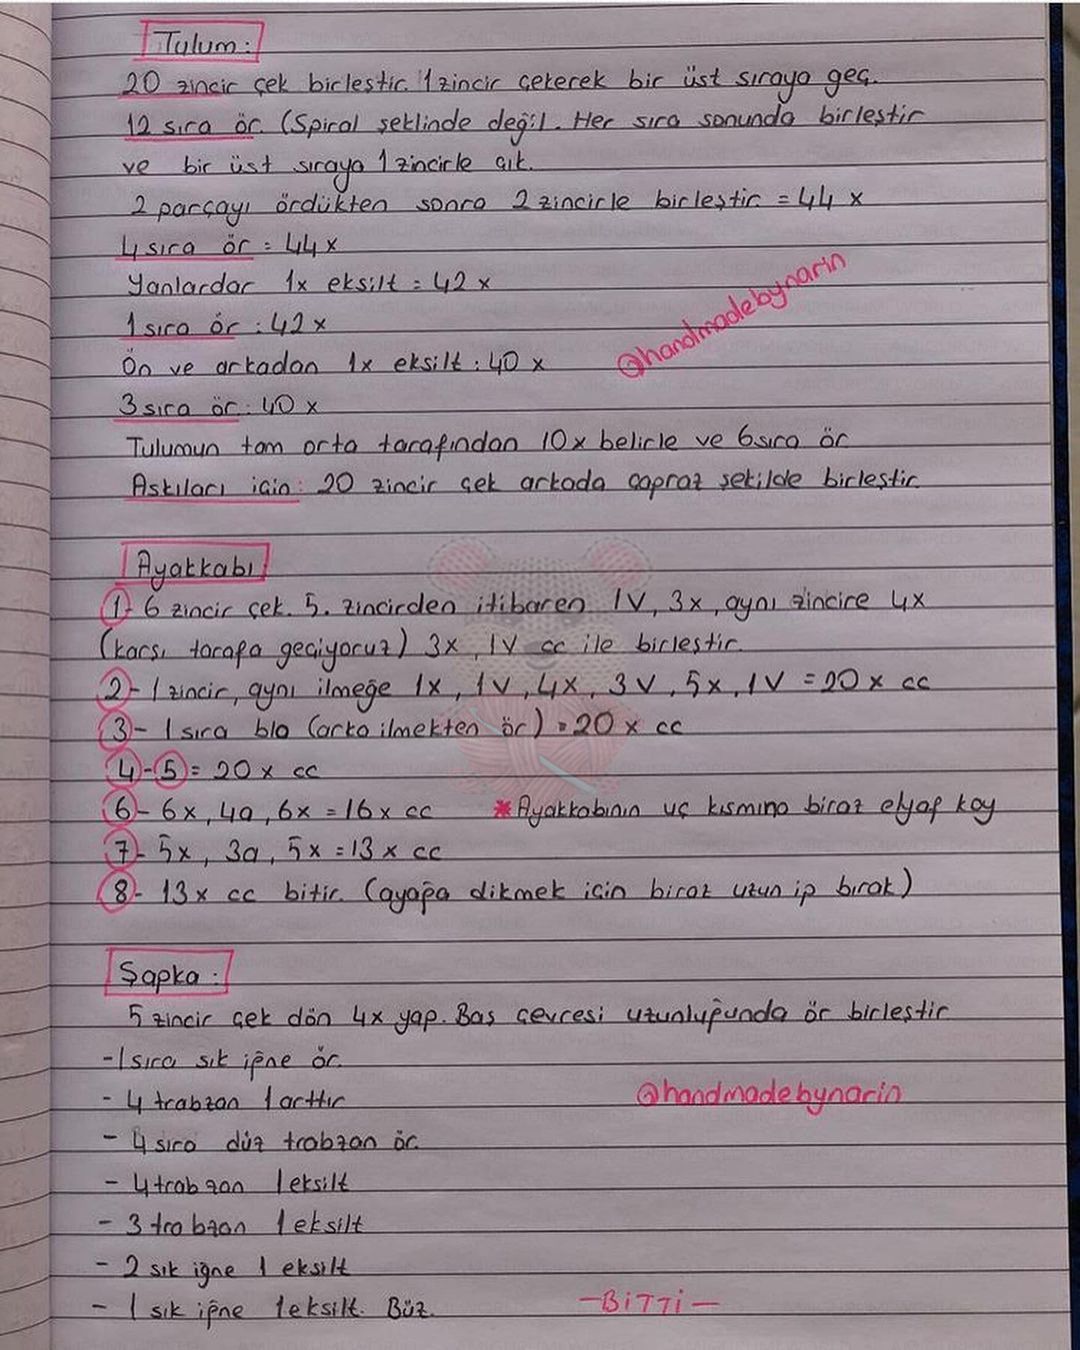 Tulum:
20 zincir çek birleştir. 1 zincir çekerek bir üst sıraya geç.
12 sıra ör. (Spiral şeklinde değil. Her sıra sonunda birleştir
ve bir üst sıraya 1 zincirle çık.
2 parçayı ördükten sonra 2 zincirle birleştir = 44 x
4 sıra ör = 44x
Yanlardar 1x eksilt = 42 x
1 sıra ör : 42 x
@handmadebynarin
Ön ve arkadan 1x eksilt : 40 x
3 sıra ör : 40 x
Tulumun tam orta tarafından 10x belirle ve 6 sıra ör
Askıları için : 20 zincir çek arkada çapraz şekilde birleştir
Ayakkabı
1- 6 zincir çek. 5. zincirden itibaren 1V, 3x, aynı zincire 4x
(karşı tarafa geçiyoruz) 3x, 1V cc ile birleştir.
2- 1 zincir, aynı ilmeğe 1x, 1V, 4x, 3V, 5x, 1V = 20x cc
3- 1 sıra blo (arka ilmekten ör) = 20 x cc
4-5 = 20 x cc
6- 6x, 4a, 6x = 16 x cc * Ayakkabının uç kısmına biraz elyaf koy
7- 5x, 3a, 5x = 13 x cc
8- 13x cc bitir. (ayağa dikmek için biraz uzun ip bırak)
Şapka :
5 zincir çek dön 4x yap. Baş çevresi uzunluğunda ör birleştir
- 1 sıra sık iğne ör.
- 4 trabzan 1 arttır
@handmadebynarin
- 4 sıra düz trabzan ör.
- 4 trabzan 1 eksilt
- 3 trabzan 1 eksilt
- 2 sık iğne 1 eksilt
- 1 sık iğne 1 eksilt. Büz.
- BİTTİ -